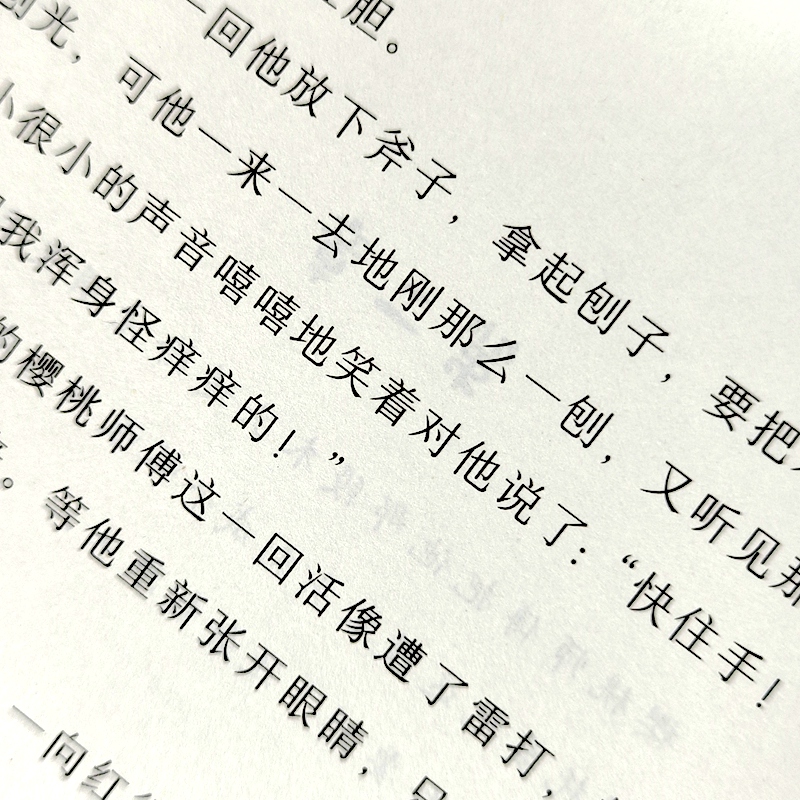 胆。
一回他放下斧子，拿起刨子，要把
刨光，可他一来一去地刚那么一刨，又听见那
小很小的声音嘻嘻地笑着对他说了：“快住手！
我浑身怪痒痒的！”
的樱桃师傅这一回活像遭了雷打，
。等他重新张开眼睛，只
一向红